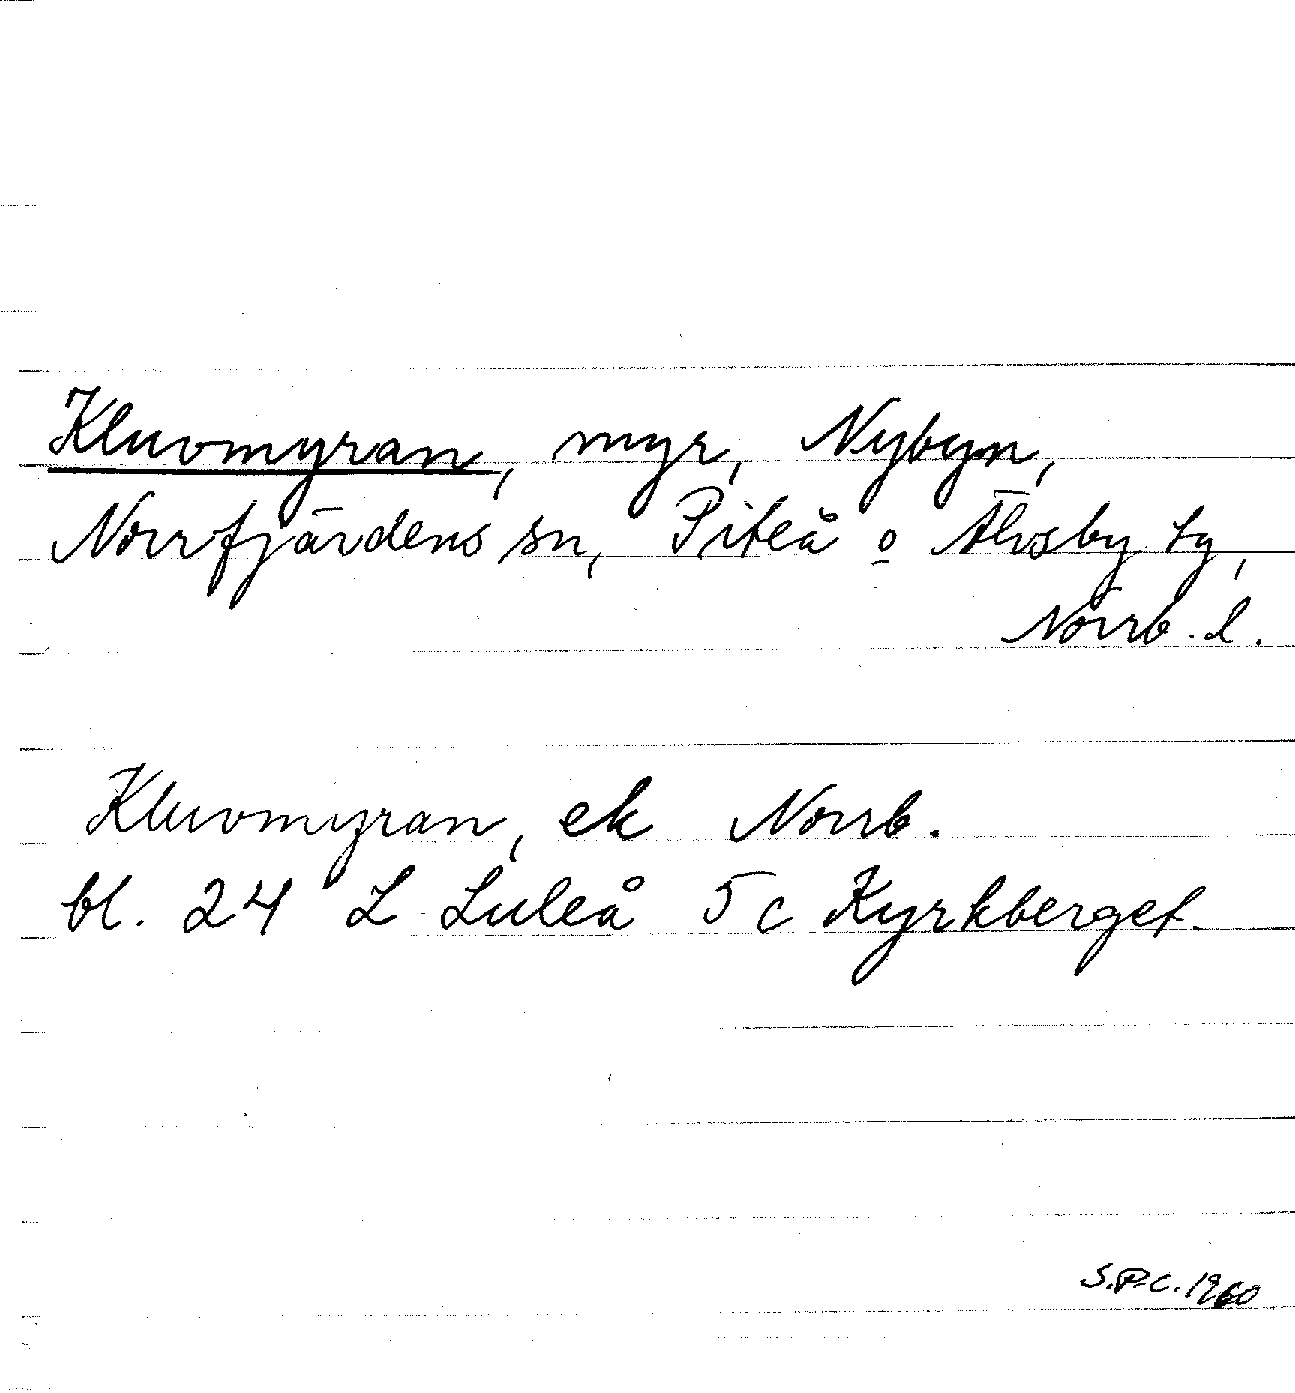 Kluvmyran, myr, Nybyn,
Norrfjärdens sn, Piteå o Älvsby tg,
Norrb. l.
Kluvmyran, ek Norrb.
bl. 24 L Luleå 5 c Kyrkberget.
S.P.C. 1960